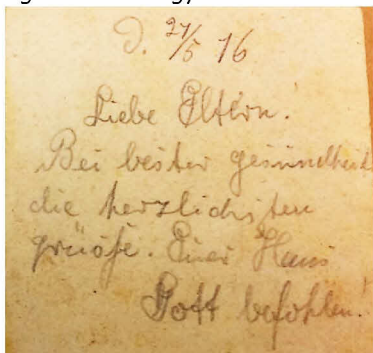 D. 27/5 16
Liebe Eltern!
Bei bester gesundheit
die herzlichsten
grüße. Euer Hans
Gott befohlen!